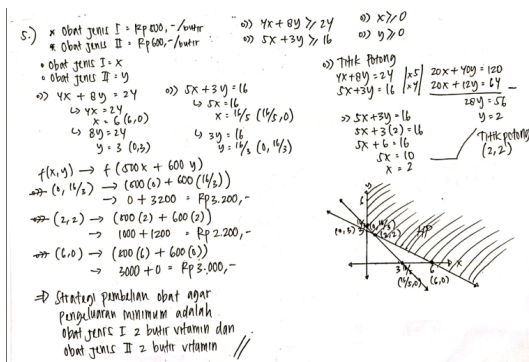 5.) * Obat jenis I = Rp500,-/butir
* Obat jenis II = Rp600,-/butir
• Obat jenis I = x
• Obat jenis II = y
o)) 4x + 8y ≥ 24
o)) 5x + 3y ≥ 16
o)) x ≥ 0
o)) y ≥ 0
o)) 4x + 8y = 24
↳ 4x = 24
x = 6 (6,0)
↳ 8y = 24
y = 3 (0,3)
o)) 5x + 3y = 16
↳ 5x = 16
x = 16/5 (16/5,0)
↳ 3y = 16
y = 16/3 (0, 16/3)
o)) Titik Potong
4x + 8y = 24 |x5| 20x + 40y = 120
5x + 3y = 16 |x4| 20x + 12y = 64 -
28y = 56
y = 2
>> 5x + 3y = 16
5x + 3(2) = 16
5x + 6 = 16
5x = 10
x = 2
Titik potong
(2,2)
f(x,y) → f(500x + 600y)
(0, 16/3) → (500(0) + 600(16/3))
→ 0 + 3200 = Rp3.200,-
(2,2) → (500(2) + 600(2))
→ 1000 + 1200 = Rp 2.200,-
(6,0) → (500(6) + 600(0))
→ 3000 + 0 = Rp3.000,-
⇒ Strategi pembelian obat agar
pengeluaran minimum adalah
obat jenis I 2 butir vitamin dan
obat jenis II 2 butir vitamin
y
6
(0, 16/3)
(0,3)
3
(2,2)
HP
3
16/5
6
x
(16/5,0)
(6,0)